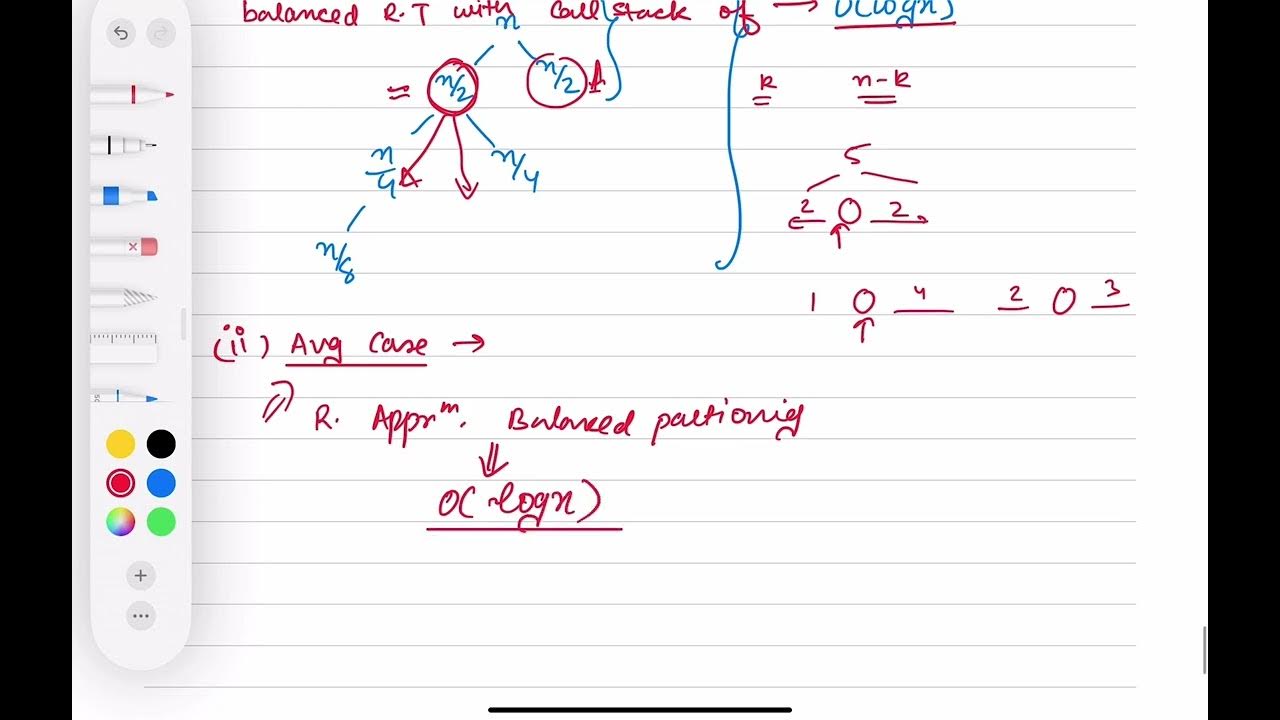 balanced R.T with call stack of → O(logn)
n
n/2 n/2
k n-k
n/4 n/4
5
2 2
n/8
1 4 2 3
(ii) Avg Case →
R. Apprm. Balanced partioning
O(logn)